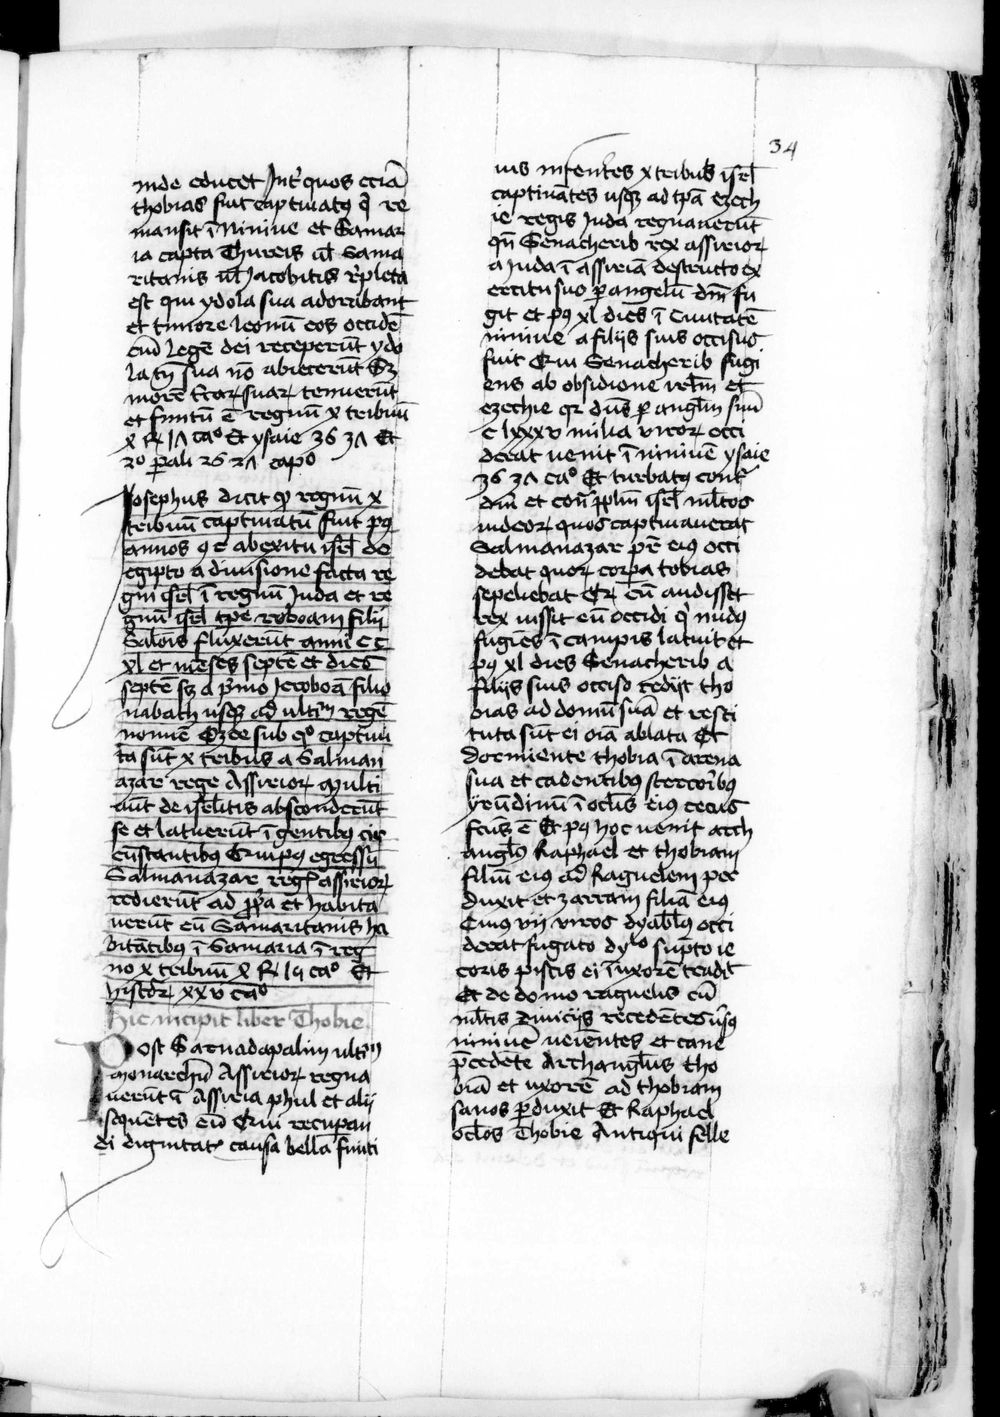 34
inde educet Int̕ quos eciā
thobias fuit captiuatꝰ q̇ re
mansit ī Niniue et Samar
ia capta Thureis uł Sama
ritanis uł Jacobitis rͥpleta
est qui ydola sua adorabant
et timore leonū eos occidē
ciū legē dei receperūt ydo
la tn̄ sua nō abiecerūt Sꝫ
morē tr̄arꝝ suarꝝ tenuerūt
et finitū ē regnū x tribuū
x R 17 caº Et ysaie 36 37 Et
2º ꝑali 26 27 capº
Iosephus dicit ꝙ regnū x
tribuū captiuatū fuit pꝰ
annos 9 c ab exitu isrł de
egipto a diuisione facta re
gni isrł ī regnū Juda et re
gnū isrł tꝑe roboam filij
Salōis fluxerūt anni c c
xl et mēses septē et dies
septē sꝫ a pͥmo Jeroboā filio
nabath usqꝫ ad ultimū regē
nomīe Ozee sub qº captiua
ta sūt x tribus a Salman
azar rege Assiriorꝝ Multi
aūt de isrłitis absconderūt
se et latuerūt ī gentibꝰ cir
cūstantibꝰ Qui pꝰ egressū
Salmanazar regis assiriorꝝ
redierūt ad ꝓpͥa et habita
uerūt cū Samaritanis ha
bitātibꝰ ī Samaria ī reg
no x tribuū x R 19 caº Et
histor xxv caº
Hic incipit liber Thobie
Post Sarnadapalim ultim̄
monarchū Assiriorꝝ regna
uerūt ī Assiria phul et alij
sequētes eū Qui recuꝑan
di dignitatꝭ causa bella finiti
uis inferentes x tribubꝰ isrł
captiuātes usqꝫ ad tꝑa ezech
ie regis Juda regnauerūt
qn̄ Senacherib rex assiriorꝝ
a Juda ī assiriā destructo ex
ercitu suo ꝑ angelū dm̄ fu
git et pꝰ xl dies ī ciuitatē
niniue a filijs suis occisus
fuit Qui Senacherib fugi
ens ab obsidione irłm et
ezechie qꝛ dn̄s ꝑ angłm suū
c lxxxv milia virorꝝ occi
derat uenit ī niniuē ysaie
36 37 caº Et turbatꝰ cont̕
dm̄ et con̄ pp̄lm isrł młtos
iudeorꝝ quos captiuauerat
Salmanazar pr̄ eiꝰ occi
debat quorꝝ corꝑa tobias
sepeliebat Qꝫ cū audisset
rex iussit eū occidi q̇ nudꝰ
fugiēs ī campis latuit et
pꝰ xl dies Senacherib a
filijs suis occiso redijt tho
bias ad domū suā et resti
tuta sūt ei oīa ablata Et
dormiente thobia ī arena
sua et cadentibꝰ stercoribꝰ
yrūdinū ī oclis eiꝰ cecus
fcūs ē Et pꝰ hoc uenit arch
angłus Raphael et thobiam
filiū eiꝰ ad Raguelem per
duxit et zarram filiā eiꝰ
Cuiꝰ vij viros dyabłus occi
derat fugato dyło supto ie
coris piscis ei ī uxorē tradit
Et de domo raguelis cū
młtis diuicijs recedētes usqꝫ
niniuē ueiētes et cane
p̄cedēte Archangłus tho
biā et uxorē ad thobiam
sanos ꝑduxit Et Raphael
ocłos Thobie Antiqui felle